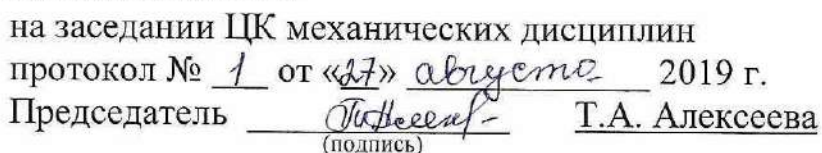 на заседании ЦК механических дисциплин
протокол № 1 от «27» августа 2019 г.
Председатель Т.А. Алексеева
(подпись)